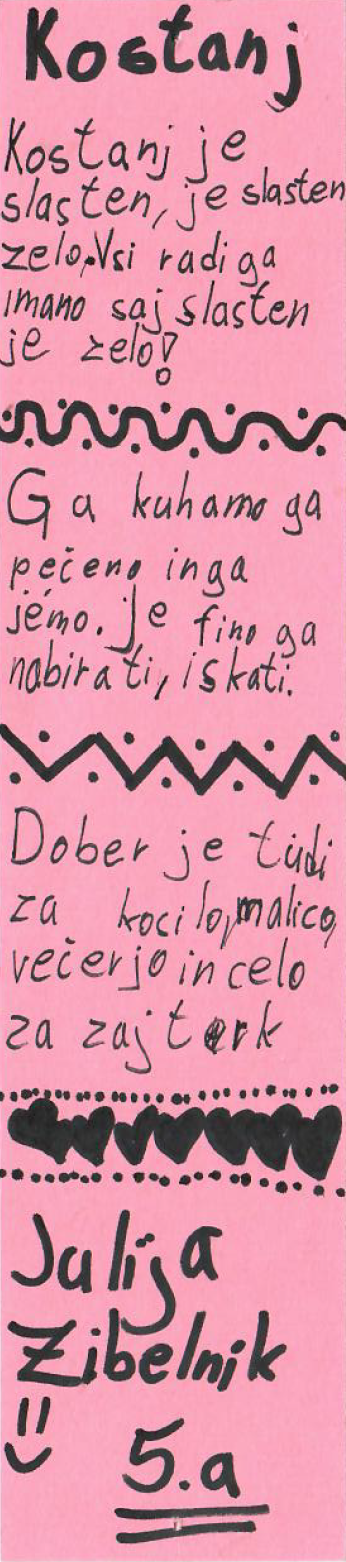 Kostanj
Kostanj je
slasten, je slasten
zelo. Vsi radi ga
imano saj slasten
je zelo!
Ga kuhamo ga
pečeno in ga
jemo. Je fino ga
nabirati, iskati.
Dober je tudi
za kocilo, malico,
večerjo in celo
za zajterk
Julija
Zibelnik
5.a